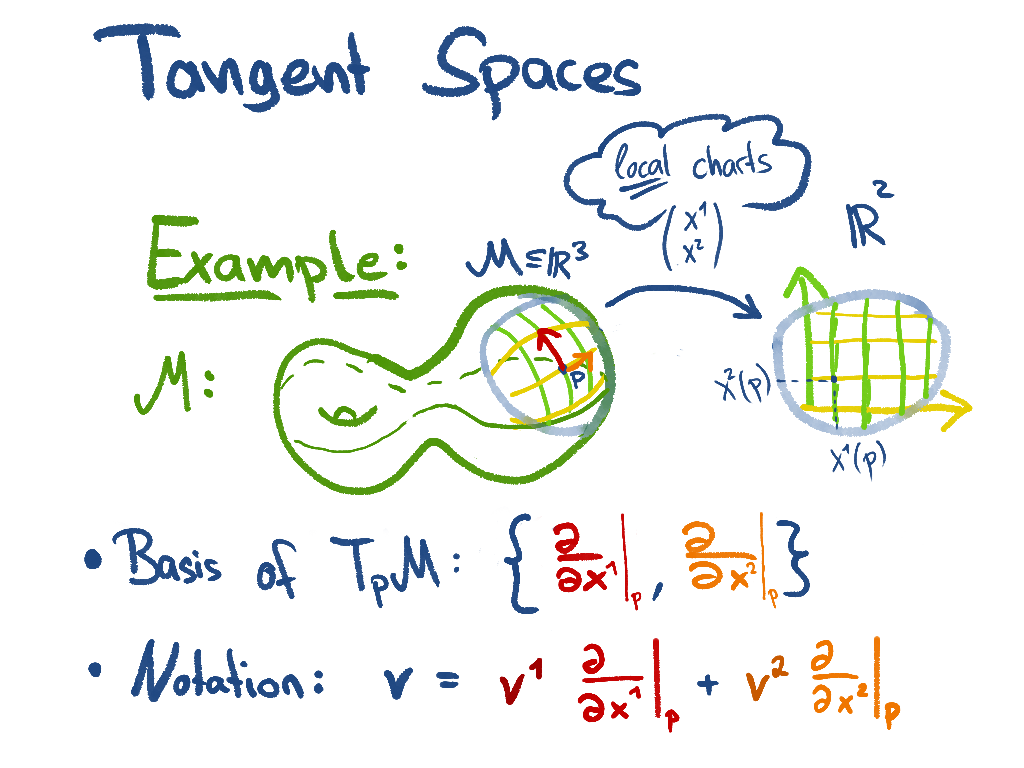 Tangent Spaces
local charts
(x¹ x²)
ℝ²
Example:
M ⊆ ℝ³
M:
p
x²(p)
x¹(p)
• Basis of TₚM: { ∂/∂x¹|ₚ, ∂/∂x²|ₚ }
• Notation: v = v¹ ∂/∂x¹|ₚ + v² ∂/∂x²|ₚ